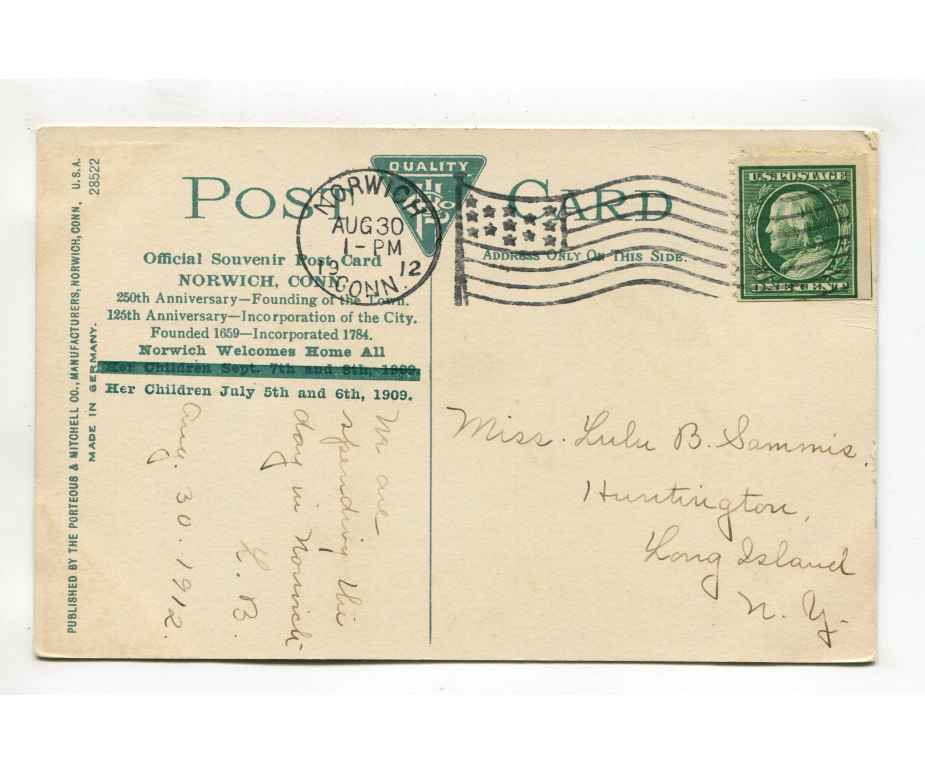 PUBLISHED BY THE PORTEOUS & MITCHELL CO., MANUFACTURERS, NORWICH, CONN, U.S.A.
MADE IN GERMANY.
28522
POST CARD
QUALITY
ADDRESS ONLY ON THIS SIDE.
Official Souvenir Post Card
NORWICH, CONN.
250th Anniversary—Founding of the Town.
125th Anniversary—Incorporation of the City.
Founded 1659—Incorporated 1784.
Norwich Welcomes Home All
Her Children Sept. 7th and 8th, 1909.
Her Children July 5th and 6th, 1909.
NORWICH
AUG 30
1-PM
19 12
CONN.
U.S. POSTAGE
ONE CENT
We are
spending this
day in Norwich
L. B.
Aug. 30. 1912.
Miss. Lulu B. Sammis.
Huntington,
Long Island
N. Y.